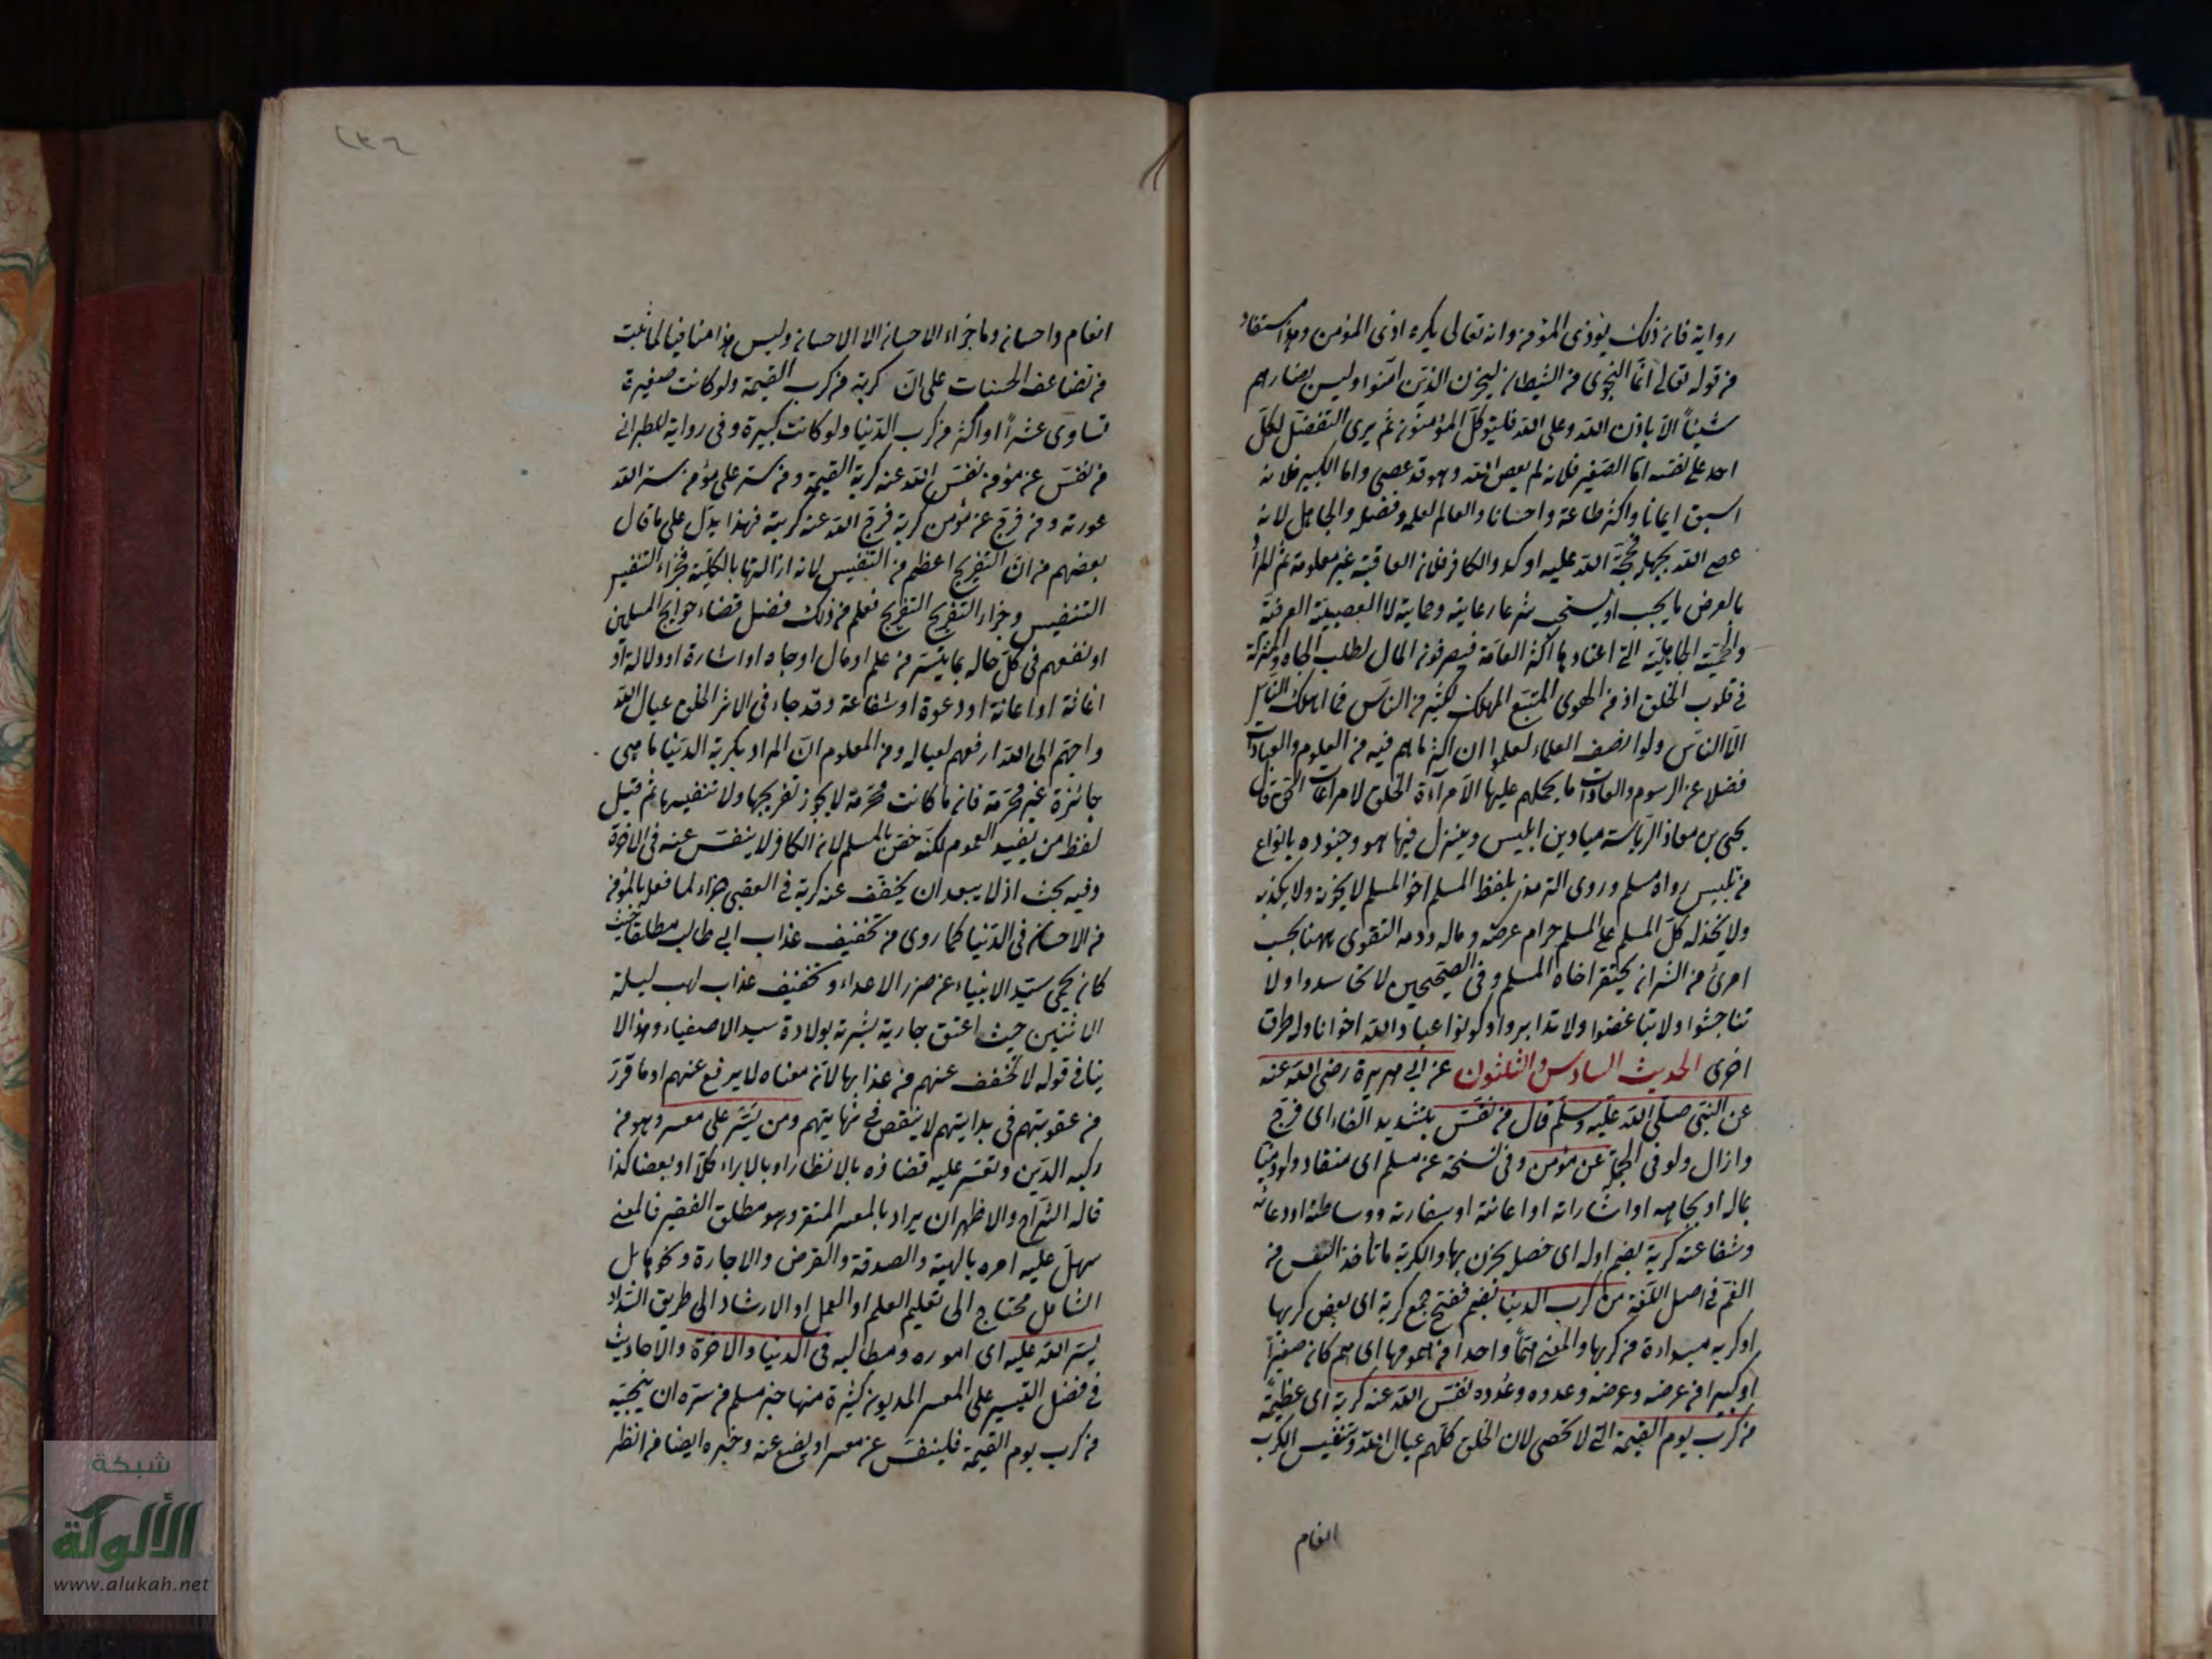 رواية فان ذلك يؤذى المؤمن وانه تعالى يكره اذى المؤمن وهذا مستفاد
من قوله تعالى انما النجوى من الشيطان ليحزن الذين آمنوا وليس بضارهم
شيئاً الا باذن الله وعلى الله فليتوكل المؤمنون ثم يرى التفضل لكل
احد على نفسه اما الصغير فلانه لم يعص الله وهو قد عصى واما الكبير فلانه
اسبق ايمانا واكثر طاعة واحسانا والعالم لعلمه وفضله والجاهل لانه
عصى الله بجهله فحجة الله عليه اوكد والكافر فلان العاقبة غير معلومة ثم المراد
بالعرض ما يجب او يستحب شرعا رعايته وحمايته لا العصبية العرفية
والحمية الجاهلية التى اعتادها اكثر العامة فيصرفون المال لطلب الجاه والمنزلة
فى قلوب الخلق اذ من الهوى المتبع المهلك لكثير من الناس فما اهلك الناس
الا الناس ولو انصف العلماء لعلموا ان اكثر ما هم فيه من العلوم والعبادات
فضلا عن الرسوم والعادات ما يحملهم عليها الا مراآة الخلق لا مراعات الحق قال
يحيى بن معاذ الرياسة ميادين ابليس وينزل فيها هو وجنوده بانواع
من تلبيس رواه مسلم وروى الترمذى بلفظ المسلم اخو المسلم لا يخونه ولا يكذبه
ولا يخذله كل المسلم على المسلم حرام عرضه وماله ودمه التقوى ههنا بحسب
امرئ من الشر ان يحتقر اخاه المسلم وفى الصحيحين لا تحاسدوا ولا
تناجشوا ولا تباغضوا ولا تدابروا وكونوا عباد الله اخوانا وله طرق
اخرى الحديث السادس والثلثون عن ابى هريرة رضى الله عنه
عن النبى صلى الله عليه وسلم قال من نفس بتشديد الفاء اى فرج
وازال ولو فى الجملة عن مؤمن وفى نسخة عن مسلم اى منقاد ولو ذميا
بماله او بجاهه او اشاراته او اعانته او سفارته ووساطته او دعائه
وشفاعته كربة بضم اوله اى خصلة يحزن بها والكربة ما تأخذ النفس من
الغم فى اصل اللغة من كرب الدنيا بضم ففتح جمع كربة اى بعض كربها
او كربة مبتدأة من كربها والمعنى همّاً واحدا من همومها اى هم كان صغيرا
او كبيرا من عرضه وعرضه وعدده وعُدده نفس الله عنه كربة اى عظيمة
من كرب يوم القيمة التى لا تحصى لان الخلق كلهم عيال الله وتنفيس الكرب
انعام
انعام واحسان وما جزاء الاحسان الا الاحسان وليس هذا منافيا لما ثبت
من تضاعف الحسنات على ان كربة من كرب القيمة ولو كانت صغيرة
تساوى عشراً او اكثر من كرب الدنيا ولو كانت كبيرة وفى رواية للطبرانى
من نفس عن مؤمن نفس الله عنه كربة القيمة ومن ستر على مؤمن ستر الله
عورته ومن فرج عن مؤمن كربة فرج الله عنه كربته فهذا يدل على ما قال
بعضهم من ان التفريج اعظم من التنفيس لانه ازالتها بالكلية فجزاء التنفيس
التنفيس وجزاء التفريج التفريج فعلم من ذلك فضل قضاء حوايج المسلمين
او نفعهم فى كل حاله بما يتيسر من علم او مال او جاه او اشارة او دلالة او
اغاثة او اعانة او دعوة او شفاعة وقد جاء فى الاثر الخلق عيال الله
واحبهم الى الله ارفعهم لعياله ومن المعلوم ان المراد بكربة الدنيا ما هى
جائزة غير محرمة فان ما كانت محرمة لا يجوز تفريجها ولا تنفيسها ثم قيل
لفظ من يفيد العموم لكنه خص بالمسلم لان الكافر لا ينفس عنه فى الاخرة
وفيه بحث اذ لا يبعد ان يخفف عنه كربة فى العقبى جزاء لما فعله بالمؤمن
من الاحسان فى الدنيا كما روى من تخفيف عذاب ابى طالب مطلقا حيث
كان يحمى سيد الانبياء عن ضرر الاعداء وتخفيف عذاب لهب ليلة
الاثنين حيث اعتق جارية بشرته بولادة سيد الاصفياء وهذا لا
ينافى قوله لا تخفف عنهم من عذابها لان معناه لا يرفع عنهم او ما قرر
من عقوبتهم فى بدايتهم لا ينقص فى نهايتهم ومن يسر على معسر وهو من
ركبه الدين وتعسر عليه قضاؤه بالانظار او بالابراء كلا او بعضا كذا
قاله الشراح والاظهر ان يراد بالمعسر وهو مطلق الفقير فالمعنى
سهل عليه امره بالهبة والصدقة والقرض والاجارة ونحو
الشامل محتاج الى تعليم العلم او العمل او الارشاد الى طريق السداد
يسر الله عليه اى اموره ومطالبه فى الدنيا والاخرة والاحاديث
فى فضل التيسير على المعسر المديون كثيرة منها خبر مسلم من سره ان ينجيه
من كرب يوم القيمة فلينفس عن معسر او يضع عنه وخبره ايضا من انظر
شبكة
الألوكة
www.alukah.net